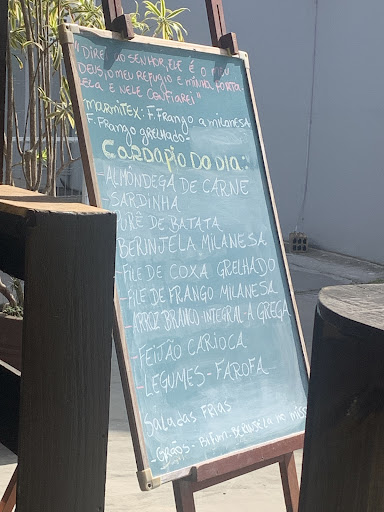 "DIREI AO SENHOR, ELE É O MEU
DEUS, O MEU REFÚGIO E MINHA FORTA-
LEZA E NELE CONFIAREI"
MARMITEX: F. FRANGO A MILANESA
F. FRANGO GRELHADO-
CARDÁPIO DO DIA:
-ALMÔNDEGA DE CARNE
-SARDINHA
PURÊ DE BATATA
BERINJELA MILANESA
-FILE DE COXA GRELHADO
-FILE DE FRANGO MILANESA
-ARROZ BRANCO INTEGRAL A GREGA
-FEIJÃO CARIOCA
-LEGUMES-FAROFA
Saladas FRIAS
-GRÃOS-